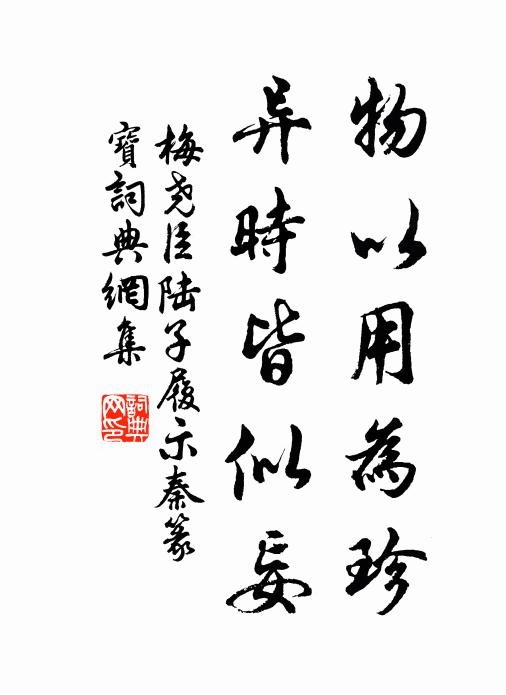 物以用為珍
异時皆似妄
梅尧臣陆子履示秦篆
寶詞典網集
詞典网印